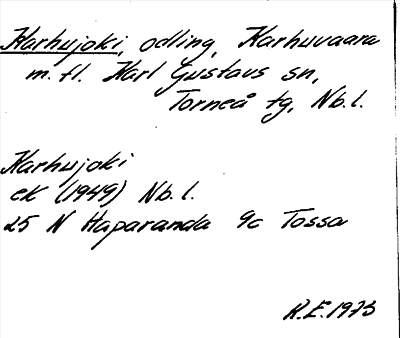 Karhujoki, odling, Karhuvaara
m.fl. Karl Gustavs sn,
Torneå tg, Nb.l.
Karhujoki
ek (1949) Nb.l.
25 N Haparanda 9c Tossa
R.E. 1973